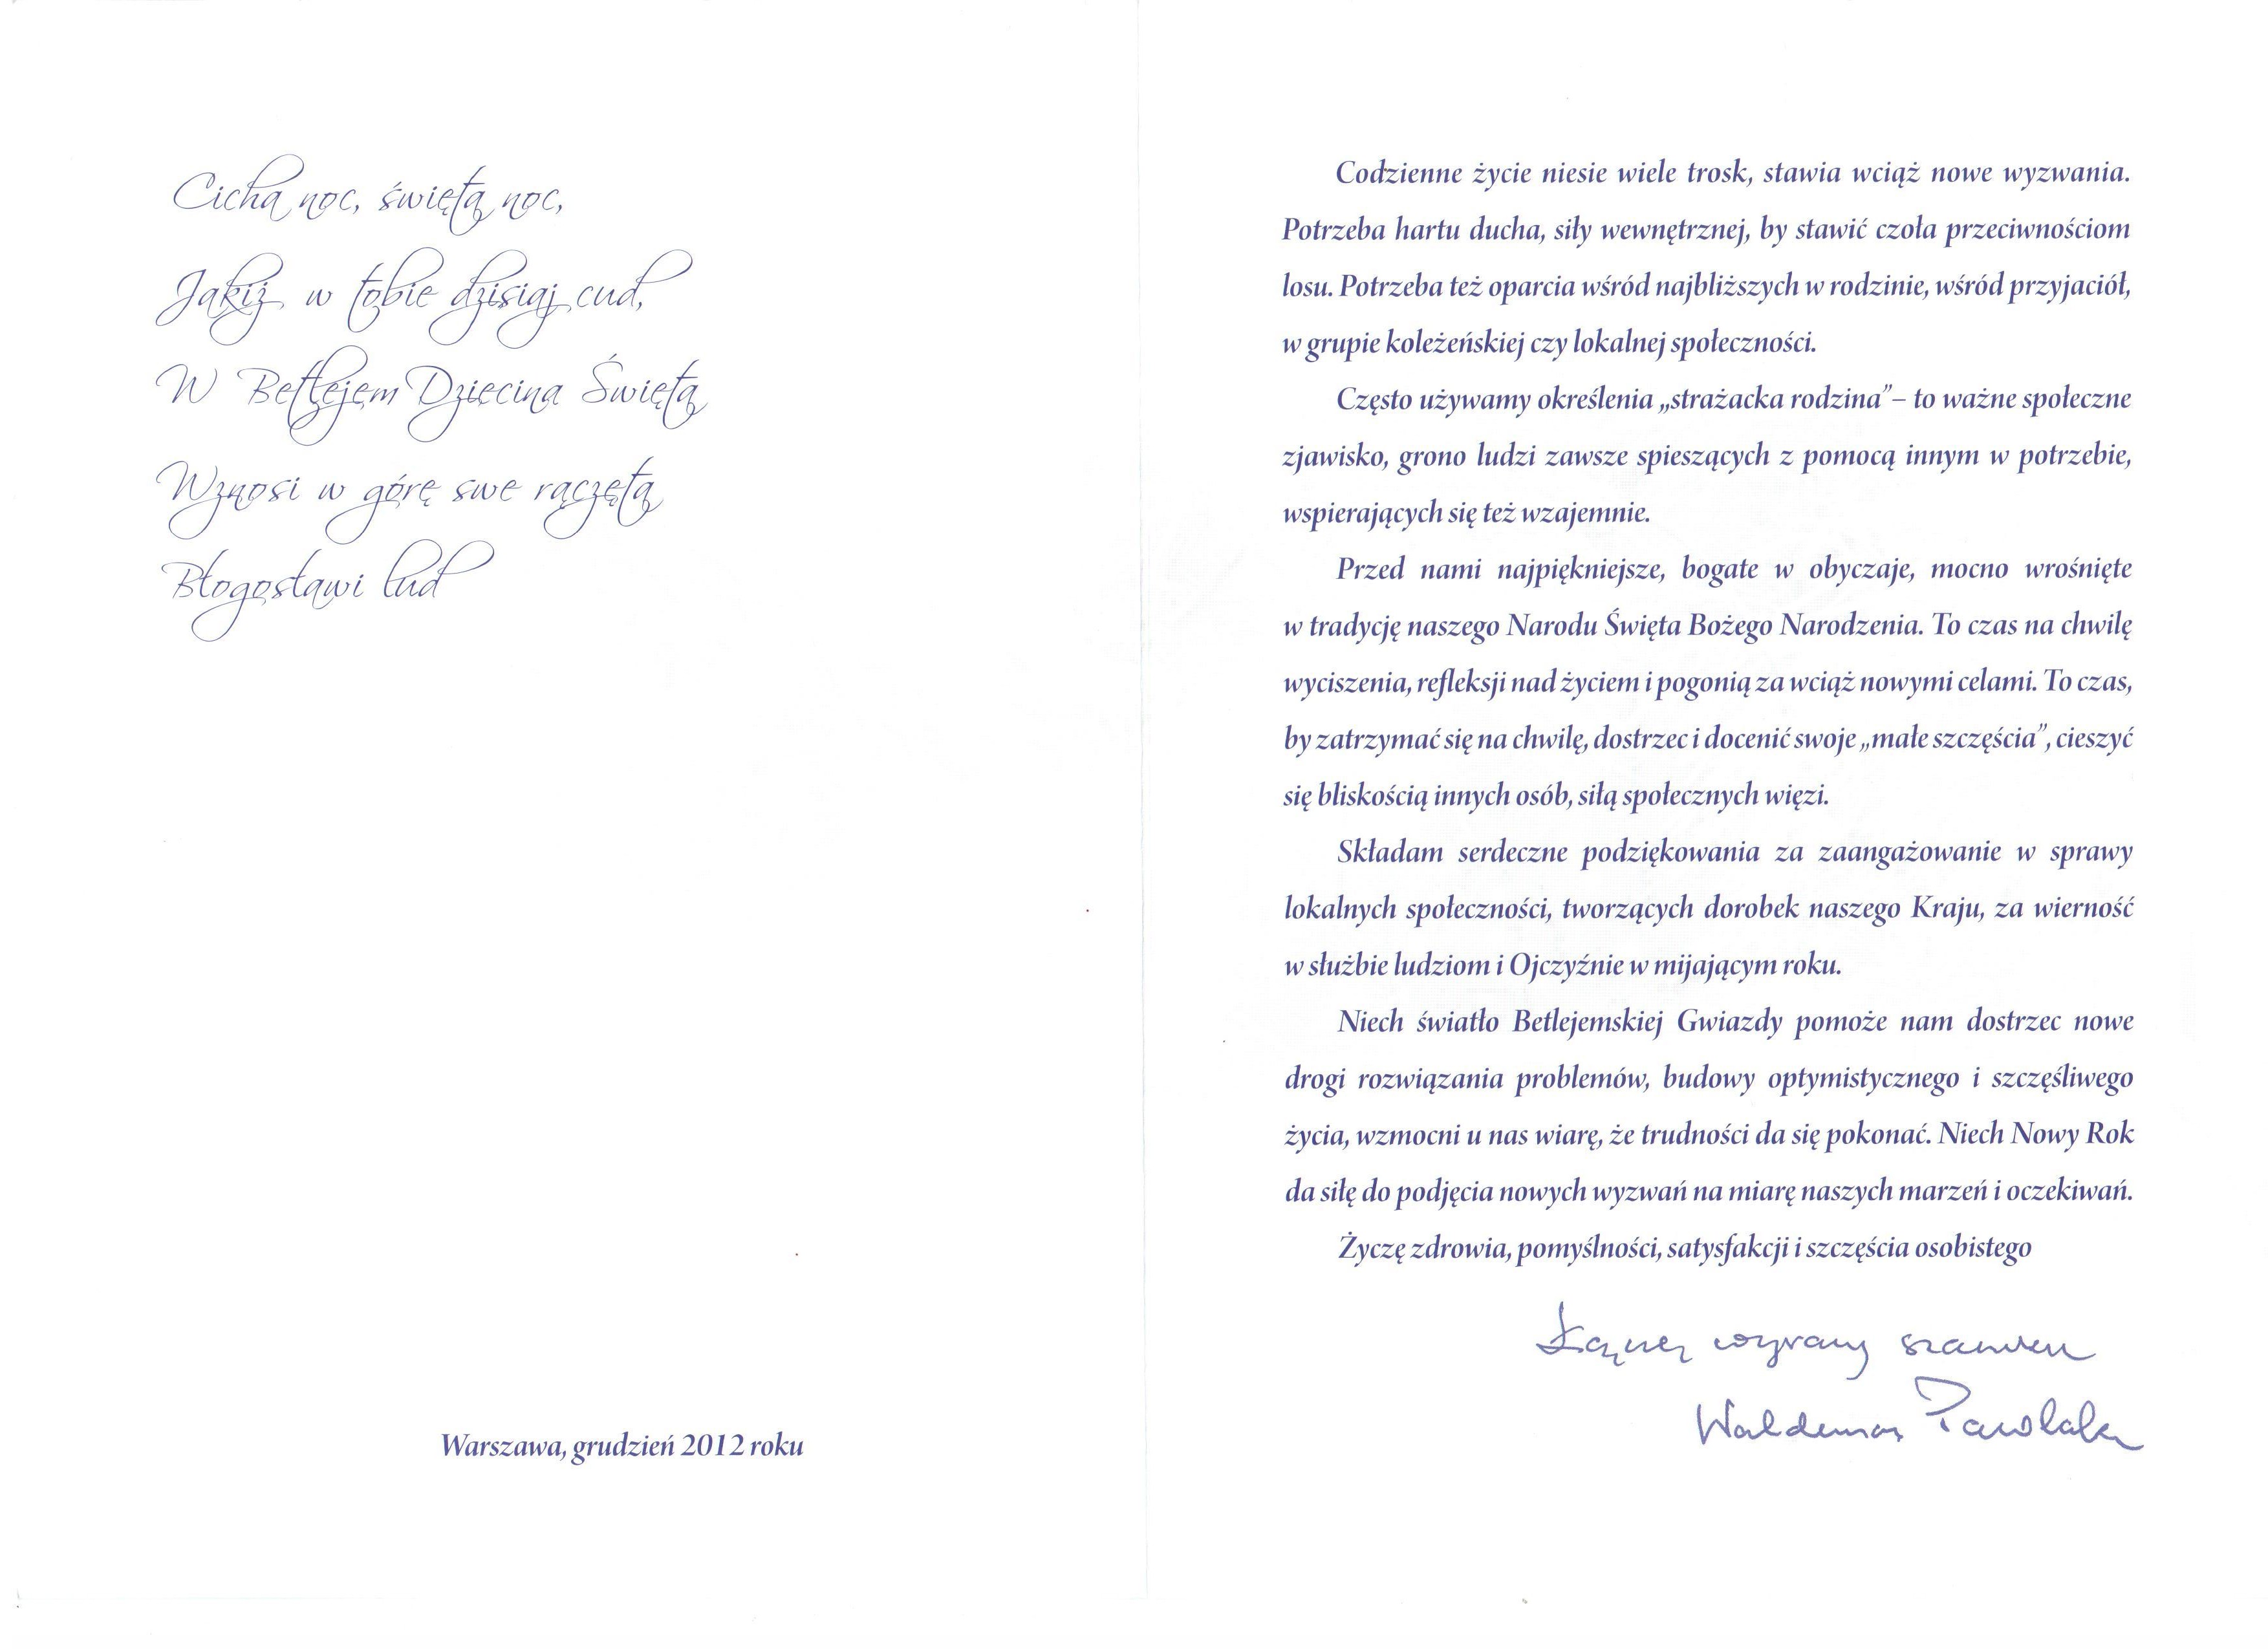 Cicha noc, święta noc,
Jakiż w tobie dzisiaj cud,
W Betlejem Dziecina Święta
Wznosi w górę swe rączęta
Błogosławi lud
Warszawa, grudzień 2012 roku
Codzienne życie niesie wiele trosk, stawia wciąż nowe wyzwania.
Potrzeba hartu ducha, siły wewnętrznej, by stawić czoła przeciwnościom
losu. Potrzeba też oparcia wśród najbliższych w rodzinie, wśród przyjaciół,
w grupie koleżeńskiej czy lokalnej społeczności.
Często używamy określenia „strażacka rodzina” – to ważne społeczne
zjawisko, grono ludzi zawsze spieszących z pomocą innym w potrzebie,
wspierających się też wzajemnie.
Przed nami najpiękniejsze, bogate w obyczaje, mocno wrośnięte
w tradycję naszego Narodu Święta Bożego Narodzenia. To czas na chwilę
wyciszenia, refleksji nad życiem i pogonią za wciąż nowymi celami. To czas,
by zatrzymać się na chwilę, dostrzec i docenić swoje „małe szczęścia”, cieszyć
się bliskością innych osób, siłą społecznych więzi.
Składam serdeczne podziękowania za zaangażowanie w sprawy
lokalnych społeczności, tworzących dorobek naszego Kraju, za wierność
w służbie ludziom i Ojczyźnie w mijającym roku.
Niech światło Betlejemskiej Gwiazdy pomoże nam dostrzec nowe
drogi rozwiązania problemów, budowy optymistycznego i szczęśliwego
życia, wzmocni u nas wiarę, że trudności da się pokonać. Niech Nowy Rok
da siłę do podjęcia nowych wyzwań na miarę naszych marzeń i oczekiwań.
Życzę zdrowia, pomyślności, satysfakcji i szczęścia osobistego
Łączę wyrazy szacunku
Waldemar Pawlak